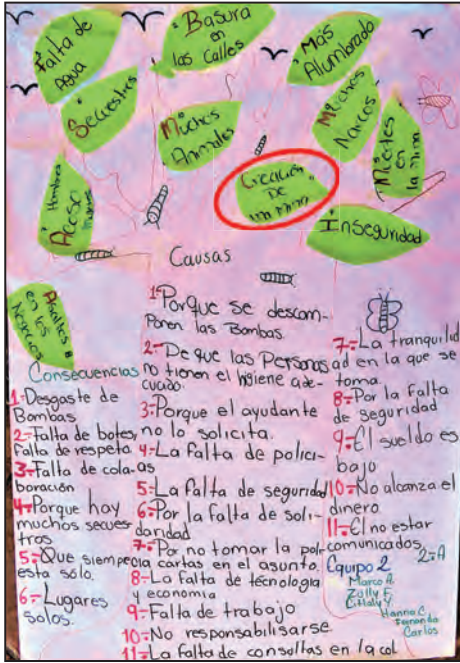 Falta de
Agua
Basura
en
las Calles
Más
Alumbrado
Secuestros
Muchos
Animales
Muchos
Narcos
Muertes
en
la mina
Creación
De
una mina
Hombres
Acoso
Inseguridad
Asaltes
en los
Negocios
Causas
1-Porque se descom-
Ponen las Bombas.
2-De que las Personas
no tienen el higiene ade-
cuado.
3-Porque el ayudante
no lo solicita.
4-La falta de polici-
as
5-La falta de seguridad
6-Por la falta de soli-
daridad
7-Por no tomar la poli-
cia cartas en el asunto.
8-La falta de tecnologia
y economia
9-Falta de trabajo
10-No responsabilisarse
11-La falta de consultas en la col
Consecuencias
1-Desgaste de
Bombas
2-Falta de botes,
falta de respeto
3-Falta de cola-
boración
4-Porque hay
muchos secues
tros
5-Que siempre
esta sólo.
6-Lugares
solos.
7-La tranquilid
ad en la que se
toma.
8-Por la falta
de seguridad
9-El sueldo es
bajo
10-No alcanza el
dinero
11-El no estar
comunicados
Equipo 2
2-A
Marco A.
Zally F.
Citlaly Y.
Hanna C.
Fernanda
Carlos